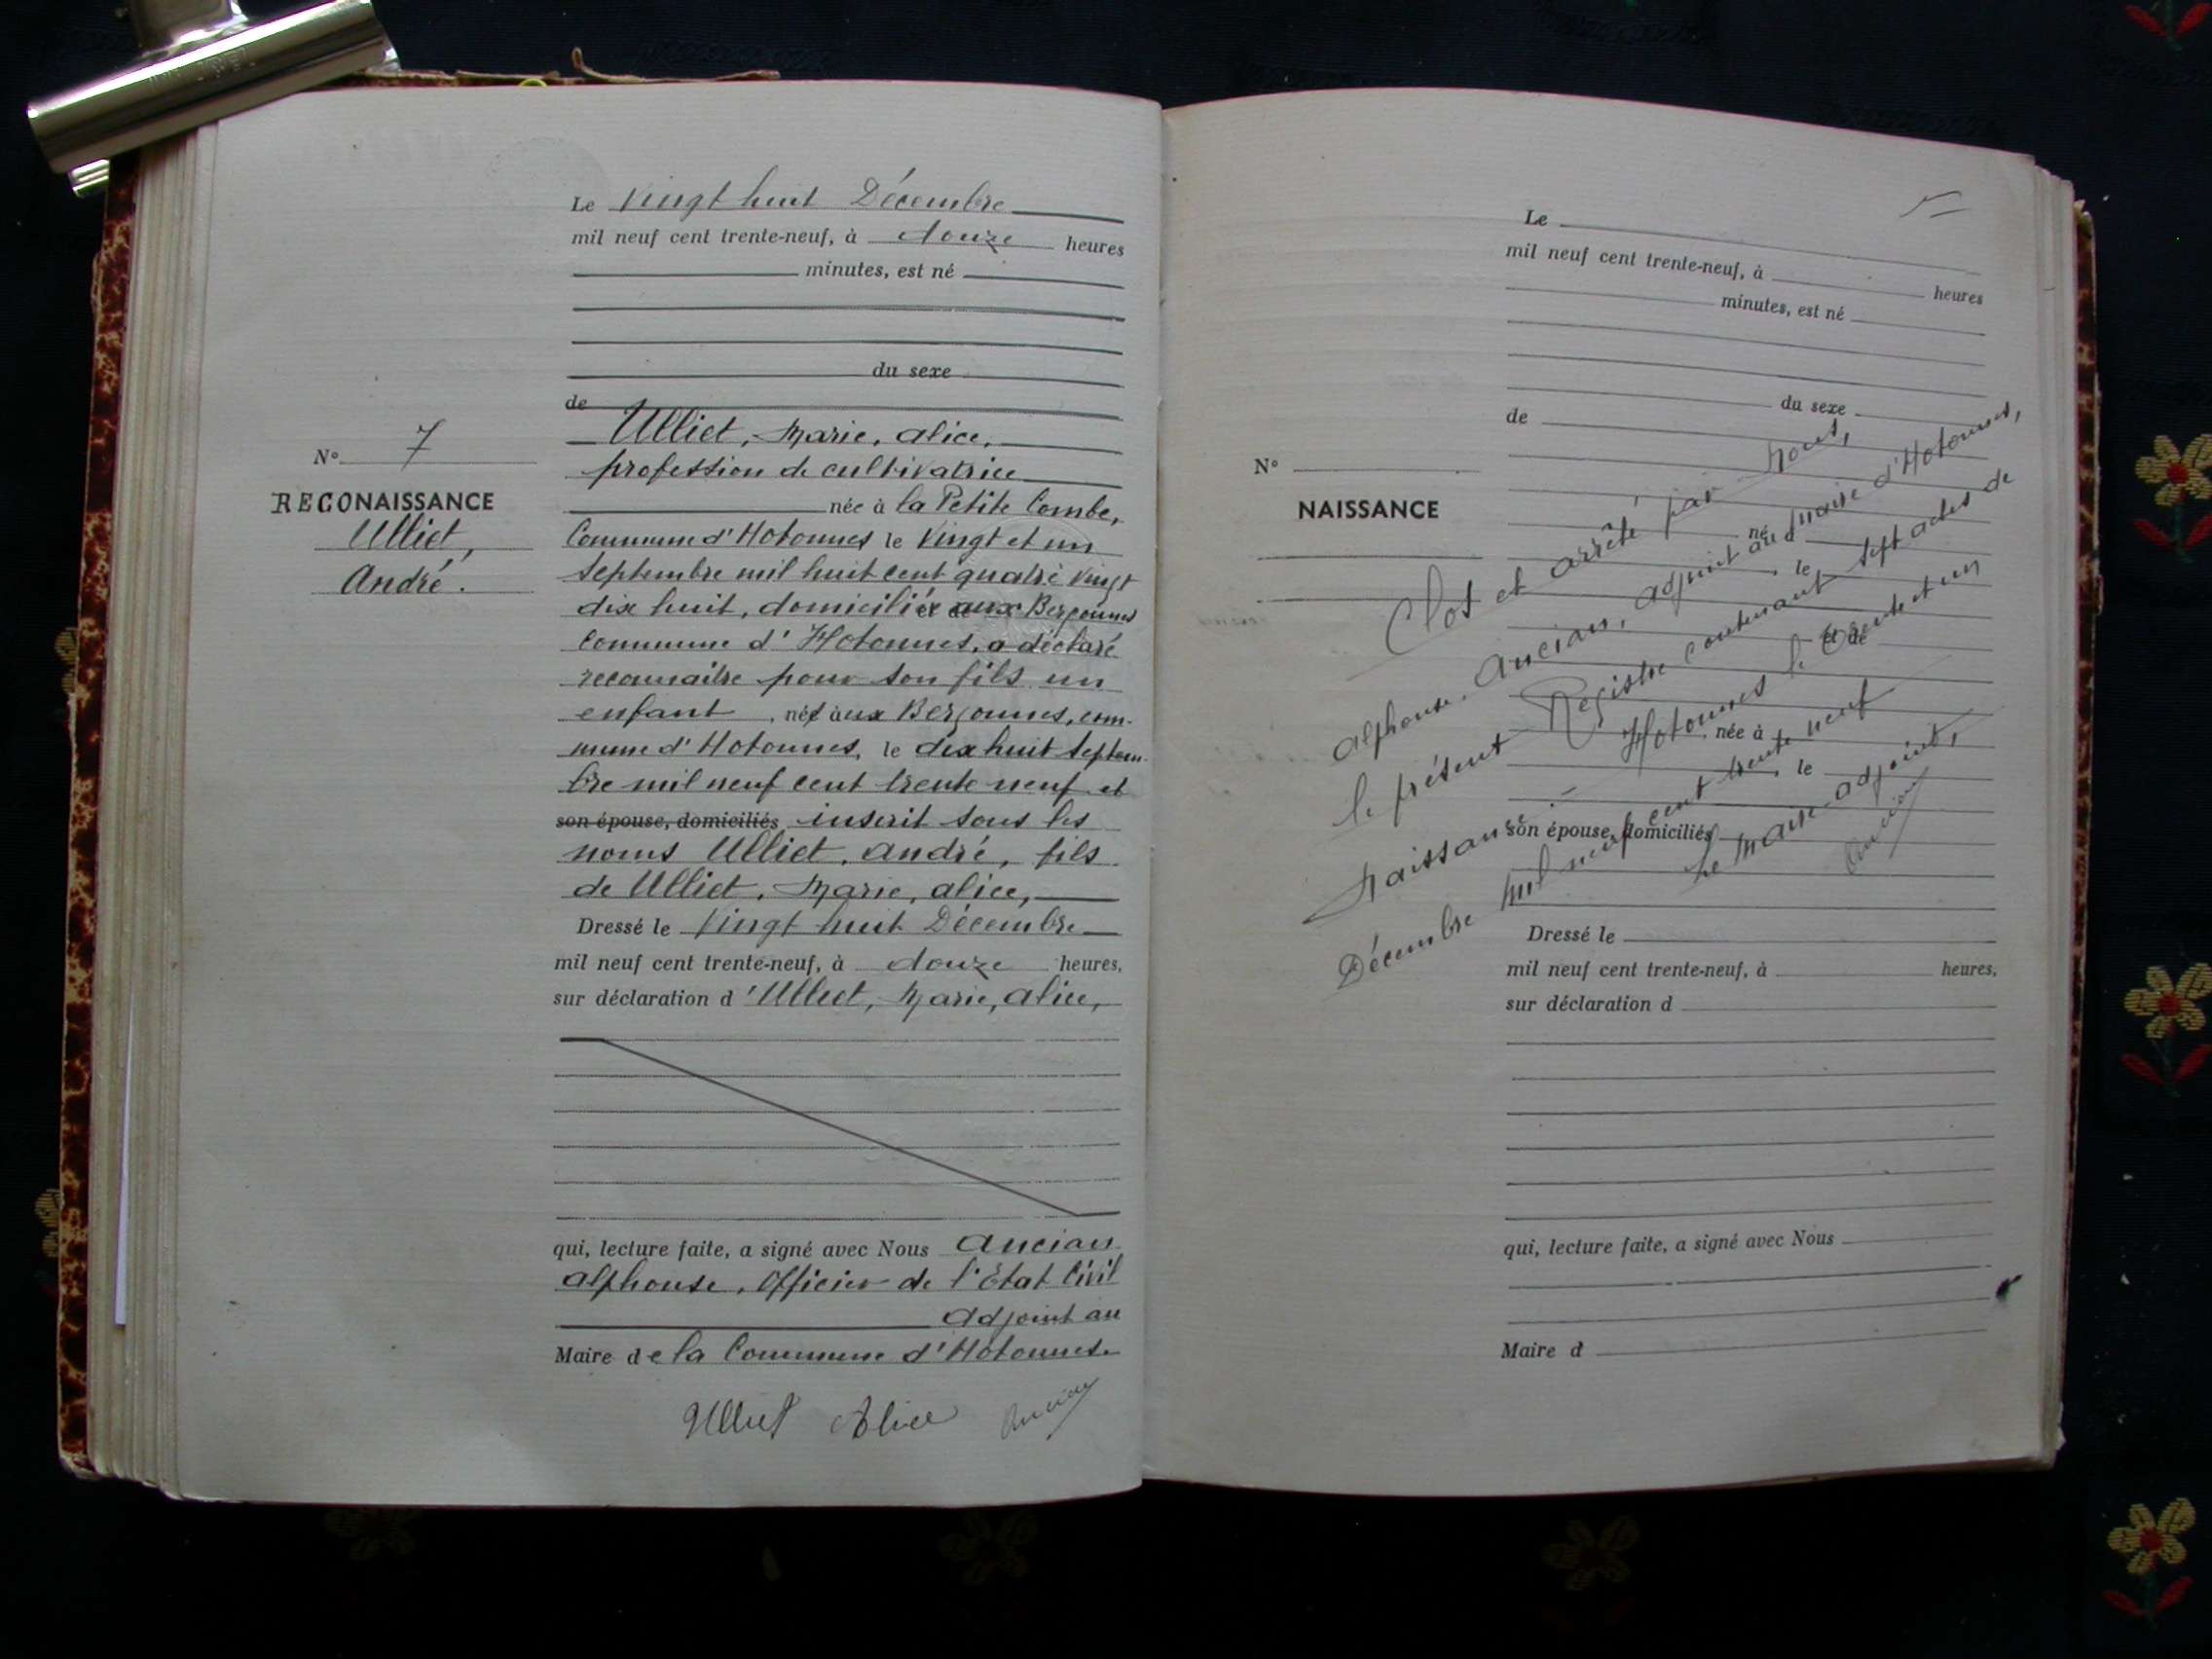 Le Vingt huit Décembre
mil neuf cent trente-neuf, à douze heures
minutes, est né
du sexe
de
Ulliet, Marie, alice,
profession de cultivatrice
née à la Petite Combe,
Commune d'Hotonnes le Vingt et un
Septembre mil huit cent quatre vingt
dix huit, domiciliée aux Bergonnes
commune d'Hotonnes, a déclaré
reconnaitre pour son fils un
enfant, né aux Bergonnes, com-
mune d'Hotonnes, le dix huit Septem-
bre mil neuf cent trente neuf et
son épouse, domiciliés inscrit sous les
noms Ulliet, André, fils
de Ulliet, Marie, alice,
Dressé le Vingt huit Décembre
mil neuf cent trente-neuf, à douze heures,
sur déclaration d'Ulliet, Marie, alice,
qui, lecture faite, a signé avec Nous Ancian
alphonse, Officier de l'Etat Civil
Adjoint au
Maire de la Commune d'Hotonnes
Ulliet Alice Ancian
N° 7
RECONAISSANCE
Ulliet,
André.
Le
mil neuf cent trente-neuf, à heures
minutes, est né
du sexe
de
N°
NAISSANCE
né à
le
et de
née à
le
son épouse, domiciliés
Dressé le
mil neuf cent trente-neuf, à heures,
sur déclaration d
qui, lecture faite, a signé avec Nous
Maire d
Clos et arrêté par Nous,
Alphonse, Ancian, adjoint au maire d'Hotonnes,
le présent Registre contenant sept actes de
Naissance. Hotonnes le trente et un
Décembre mil neuf cent trente neuf
Le Maire adjoint,
Ancian